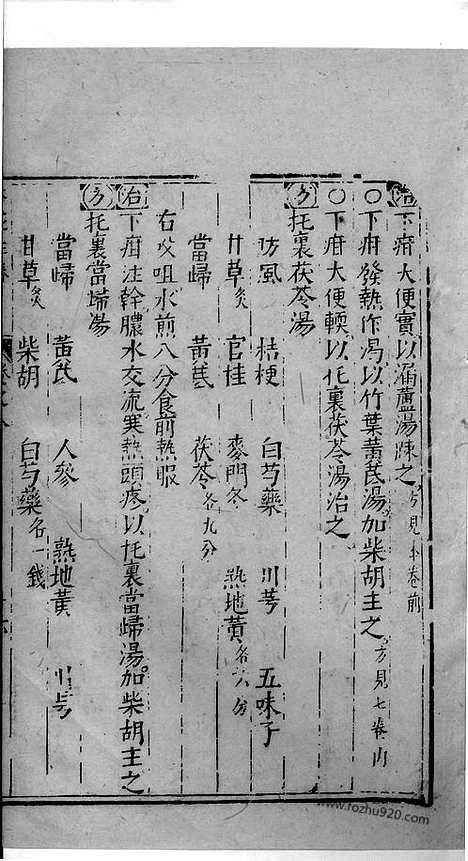 治 下疳大便實以漏蘆湯疎之方見本卷前
〇下疳發熱作渴以竹葉黃芪湯加柴胡主之方見七卷内
〇下疳大便輭以托裏茯苓湯治之
方 托裏茯苓湯
防風 桔梗 白芍藥 川芎 五味子
甘草炙 官桂 麥門冬 熟地黃各六分
當歸 黃芪 茯苓各九分
右㕮咀水煎八分食前熱服
治 下疳注幹膿水交流寒熱頭疼以托裏當歸湯加柴胡主之
方 托裏當歸湯
當歸 黃芪 人參 熟地黃 川芎
甘草炙 柴胡 白芍藥各一錢
www.fozhu920.com